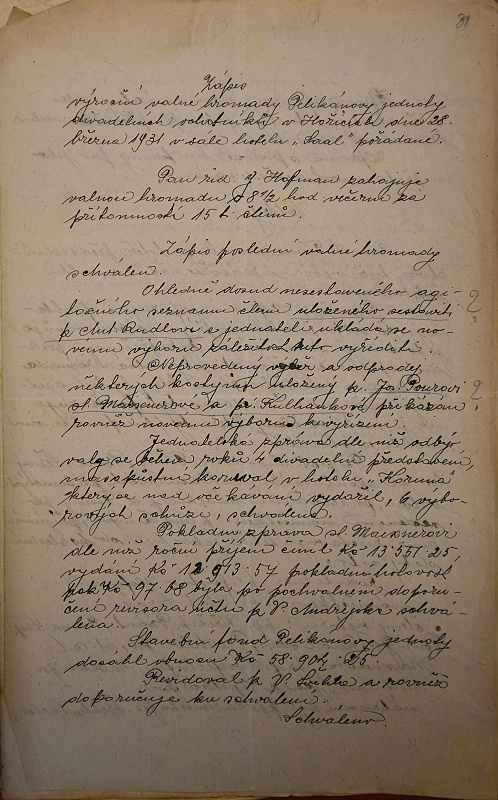 31
Zápis
výroční valné hromady Pelikánovy jednoty
divadelních ochotníků v Hořicích dne 28.
března 1931 v sále hotelu "Saal" pořádané.
Pan řid. J. Hofman zahajuje
valnou hromadu o 8 1/2 hod večerní za
přítomnosti 15 t. členů.
Zápis poslední valné hromady
schválen.
Ohledně dosud nesestaveného agi-
tačního seznamu členů uloženého sestaviti
p. Ant. Rudlovi s jednateli ukládá se no-
vému výboru záležitost tuto vyříditi.
Neprovedený výběr a odprodej
některých kostýmů uložený p. Jos. Pourovi
sl. Maixnerové a pí. Kulhánkové přikázán
rovněž novému výboru k vyřízení.
Jednatelská zpráva dle níž odbý-
valy se během roku 4 divadelní představení,
masopustní karneval v hotelu "Koruna"
který se nad očekávání vydařil, 6 výbo-
rových schůzí, schválena.
Pokladní zpráva sl. Maixnerovi
dle níž roční příjem činil Kč 13.551.25,
vydání Kč 12.913.57 pokladní hotovost
pak Kč 97.68 byla po pochvalném doporu-
čení revisora účtů p. V. Andrejska schvá-
lena.
Stavební fond Pelikánovy jednoty
dosáhl obnosu Kč 58.904.25.
Revidoval p. V. a rovněž
doporučuje ku schválení.
Schváleno.